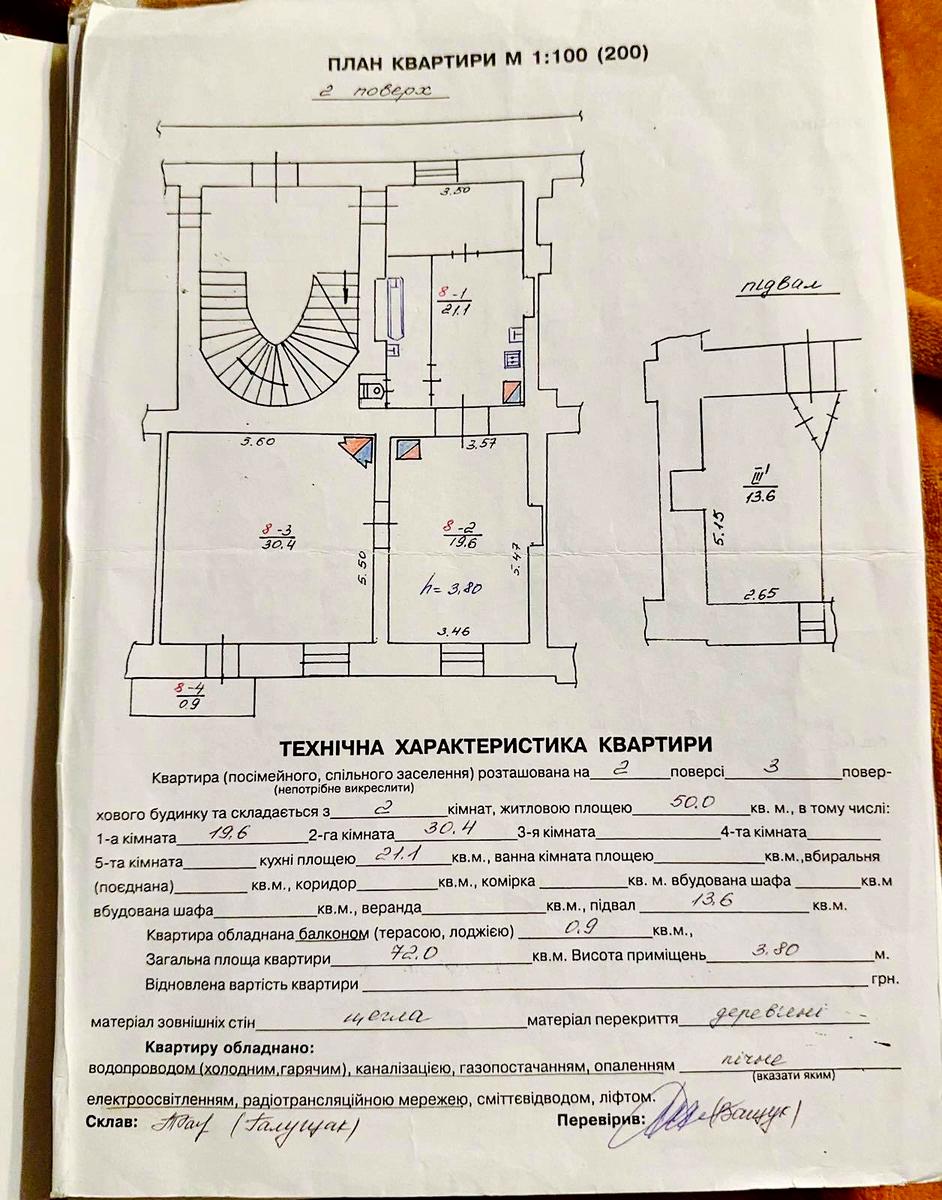 ПЛАН КВАРТИРИ М 1:100 (200)
2 поверх
3.50
8-1
21.1
підвал
5.60
3.57
III'
13.6
8-3
30.4
8-2
19.6
5.15
5.50
5.47
h= 3.80
2.65
3.46
8-4
0.9
ТЕХНІЧНА ХАРАКТЕРИСТИКА КВАРТИРИ
Квартира (посімейного, спільного заселення) розташована на 2 поверсі 3 повер-
(непотрібне викреслити)
хового будинку та складається з 2 кімнат, житловою площею 50.0 кв. м., в тому числі:
1-а кімната 19.6 2-га кімната 30.4 3-я кімната 4-та кімната
5-та кімната кухні площею 21.1 кв.м., ванна кімната площею кв.м.,вбиральня
(поєднана) кв.м., коридор кв.м., комірка кв. м. вбудована шафа кв.м
вбудована шафа кв.м., веранда кв.м., підвал 13.6 кв.м.
Квартира обладнана балконом (терасою, лоджією) 0.9 кв.м.,
Загальна площа квартири 72.0 кв.м. Висота приміщень 3.80 м.
Відновлена вартість квартири грн.
матеріал зовнішніх стін цегла матеріал перекриття дерев'яні
Квартиру обладнано:
водопроводом (холодним,гарячим), каналізацією, газопостачанням, опаленням пічне
(вказати яким)
електроосвітленням, радіотрансляційною мережею, сміттєвідводом, ліфтом.
Склав: (Галущак) Перевірив: (Ващук)